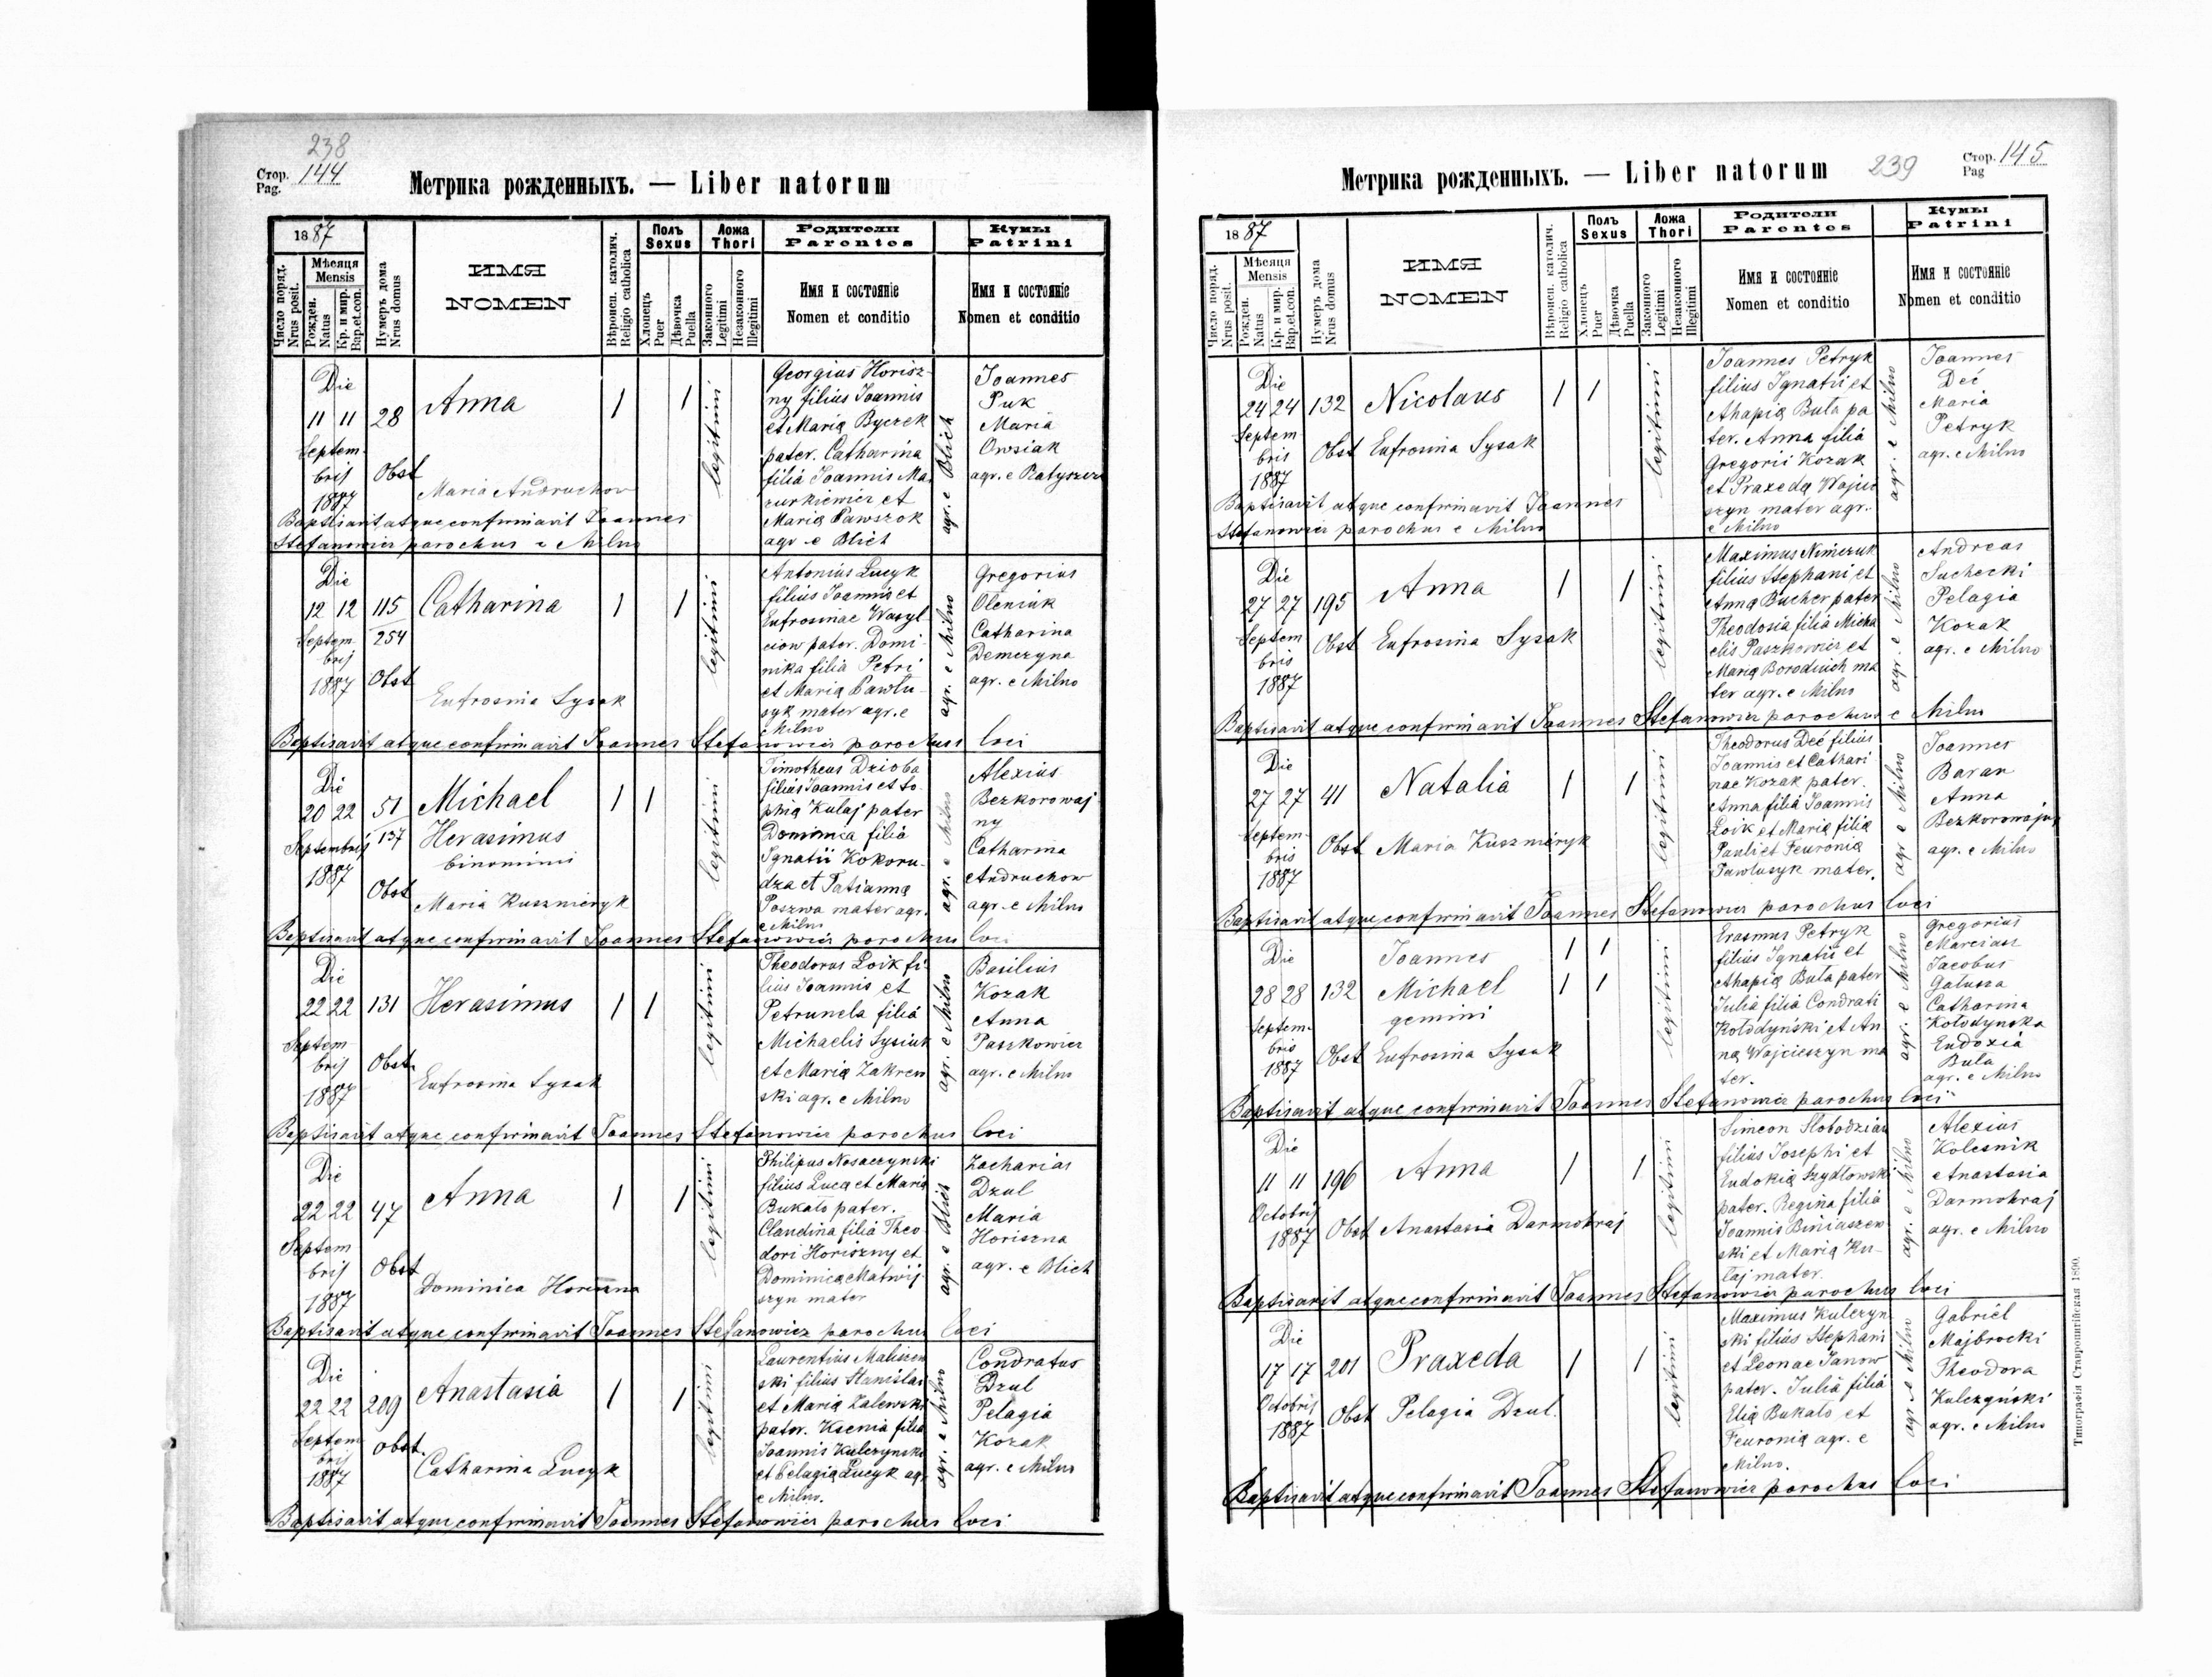 238
Стор. Pag. 144
Метрика рожденныхъ. — Liber natorum
1887
Число поряд. Nrus posit.
Мѣсяця Mensis
Рожден. Natus
Кр. и мир. Bap.et.con.
Нумеръ дома Nrus domus
ИМЯ
NOMEN
Вѣроисп. католич. Religio catholica
Полъ Sexus
Хлопецъ Puer
Дѣвочка Puella
Ложа Thori
Законного Legitimi
Незаконного Illegitimi
Родители
Parentes
Имя и состояніе
Nomen et conditio
Кумы
Patrini
Имя и состояніе
Nomen et conditio
Die
11 11 28 Anna 1 1
Septem-
bris
1887
Obst
Maria Andruchow
legitimi
Georgius Horisz-
ny filius Joannis
et Maria Byczek
pater. Catharina
filia Joannis Ma
zurkiewicz et
Maria Pawszok
agr e Blich
agr. e Blich
Joannes
Puk
Maria
Owsiak
agr. e Ratyszcze
Baptisavit atque confirmavit Joannes
Stefanowicz parochus e Milno
Die
12 12 115 Catharina 1 1
254
Septem
brij
1887
Obst
Eufrosina Sysak
legitimi
Antonius Lucyk
filius Joannis et
Eufrosinae Wasyl-
ciow pater. Domi-
nika filia Petri
et Maria Pawlu-
syk mater agr. e
Milno
agr. e Milno
Gregorius
Oleniuk
Catharina
Demczyna
agr. e Milno
Baptisavit atque confirmavit Joannes Stefanowicz parochus loci
Die
20 22 51 Michael 1 1
137 Herasimus
binomini
Septembrij
1887
Obst
Maria Kusznieryk
legitimi
Timotheus Dzioba
filius Joannis et So-
phia Kulaj pater
Dominica filia
Ignatii Kokoru-
dza et Tatianna
Poszwa mater agr.
e Milno
agr. e Milno
Alexius
Bezkorowaj
ny
Catharina
Andruchow
agr. e Milno
Baptisavit atque confirmavit Joannes Stefanowicz parochus loci
Die
22 22 131 Herasimus 1 1
Septem
brij
1887
Obst.
Eufrosina Sysak
legitimi
Theodorus Loik fi-
lius Joannis et
Petrunela filia
Michaelis Sysiuk
et Maria Zakrew
ski agr. e Milno
agr. e Milno
Basilius
Kozak
Anna
Paszkowicz
agr. e Milno
Baptisavit atque confirmavit Joannes Stefanowicz parochus loci
Die
22 22 47 Anna 1 1
Septem
brij
1887
Obst
Dominica Horiszna
legitimi
Philipus Nosaczynski
filius Luca et Maria
Bukato pater.
Claudina filia Theo
dori Horiszny et
Dominica Matwij-
szyn mater
agr. e Blich
Zacharias
Dzul
Maria
Horiszna
agr. e Blich
Baptisavit atque confirmavit Joannes Stefanowicz parochus loci
Die
22 22 209 Anastasia 1 1
Septem
brij
1887
Obst.
Catharina Lucyk
legitimi
Laurentius Maliszew
ski filius Stanislai
et Maria Zalewski
pater. Ksenia filia
Joannis Kulczynski
et Pelagia Lucyk agr
e Milno.
agr. e Milno
Condratus
Dzul
Pelagia
Kozak
agr. e Milno
Baptisavit atque confirmavit Joannes Stefanowicz parochus loci
Метрика рожденныхъ. — Liber natorum
239
Стор. Pag 145
1887
Число поряд. Nrus posit.
Мѣсяця Mensis
Рожден. Natus
Кр. и мир. Bap.et.con.
Нумеръ дома Nrus domus
ИМЯ
NOMEN
Вѣроисп. католич. Religo catholica
Полъ Sexus
Хлопецъ Puer
Дѣвочка Puella
Ложа Thori
Законного Legitimi
Незаконного Illegitimi
Родители
Parentes
Имя и состояніе
Nomen et conditio
Кумы
Patrini
Имя и состояніе
Nomen et conditio
Die
24 24 132 Nicolaus 1 1
Septem
bris
1887
Obst Eufrosina Sysak
legitimi
Joannes Petryk
filius Ignatii et
Ahapia Buta pa
ter. Anna filia
Gregorii Kozak
et Praxeda Wojci
szyn mater agr.
e Milno
agr. e Milno
Joannes
Deć
Maria
Petryk
agr. e Milno
Baptisavit atque confirmavit Joannes
Stefanowicz parochus e Milno
Die
27 27 195 Anna 1 1
Septem
bris
1887
Obst Eufrosina Sysak
legitimi
Maximus Nimczuk
filius Stephani et
Anna Bucher pater
Theodosia filia Micha
elis Paszkowicz et
Maria Borodiuch ma
ter agr. e Milno
agr. e Milno
Andreas
Suchecki
Pelagia
Kozak
agr. e Milno
Baptisavit atque confirmavit Joannes Stefanowicz parochus e Milno
Die
27 27 41 Natalia 1 1
Septem-
bris
1887
Obst Maria Kusznieryk
legitimi
Theodorus Deć filius
Joannis et Cathari
nae Kozak pater.
Anna filia Joannis
Loik et Maria filia
Pauli et Feuronia
Pawlusyk mater.
agr e Milno
Joannes
Baran
Anna
agr. e Milno
Baptisavit atque confirmavit Joannes Stefanowicz parochus loci
Die
Joannes 1 1
28 28 132 Michael 1 1
gemini
Septem-
bris
1887
Obst Eufrosina Sysak
legitimi
Erasmus Petryk
filius Ignatii et
Ahapia Buta pater
Julia filia Condrati
Kołodyński et An
na Wojcieszyn ma
ter.
agr. e Milno
Gregorius
Jacobus
Catharina
Kołodynska
Eudoxia
Bula
agr. e Milno
Baptisavit atque confirmavit Joannes Stefanowicz parochus loci
Die
11 11 196 Anna 1 1
Octobrij
1887
Obst Anastasia Darmohraj
legitimi
Simeon Słobodzian
filius Josephi et
Eudokia Szydłowsk
pater. Regina filia
Joannis Biniaszew
ski et Maria Ku-
laj mater.
agr. e Milno
Alexius
Kolesnik
Anastasia
Darmohraj
agr. e Milno
Baptisavit atque confirmavit Joannes Stefanowicz parochus loci
Die
17 17 201 Praxeda 1 1
Octobris
1887
Obst Pelagia Dzul.
legitimi
Maximus Kulczyn
ski filius Stephani
et Leonae Janow
pater. Julia filia
Elia Bukato et
Feuronia agr. e
Milno.
agr. e Milno
Gabriel
Majbrocki
Theodora
Kulczyński
agr. e Milno
Baptisavit atque confirmavit Joannes Stefanowicz parochus loci
Типографія Ставропигійская 1890.